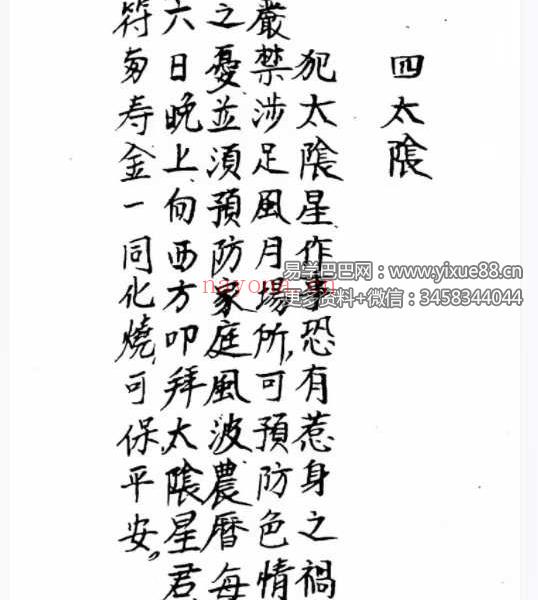 四太陰
犯太陰星作事恐有惹身之禍
嚴禁涉足風月場所,可預防色情
之憂並須預防家庭風波農曆每
六日晚上向西方叩拜太陰星君
符匊寿金一同化燒,可保平安。
易学巴巴网:www.yixue88.cn
更多资料+微信:3458344044